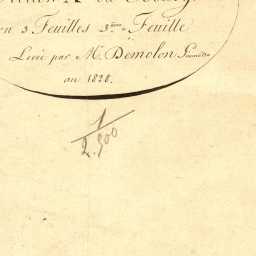 en 3 Feuilles 3.ème Feuille
Levé par M. Demolon Géomètre
an 1828.
1
2.500